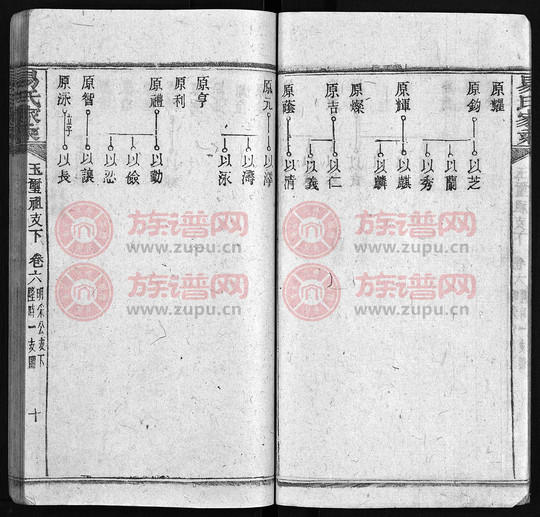 易氏家乘
原耀
原鈞 以芝
以蘭
以秀
原輝 以麒
以麟
原燦
原吉 以仁
以義
原蔭 以清
原元 以澤
以濤
以泳
原亨
原利
原禮 以勤
以儉
以忍
原智 以讓
原泳 以長
易氏家乘
玉璽祖支下 卷六
十
族谱网
www.zupu.cn
族谱网
www.zupu.cn
族谱网
www.zupu.cn
族谱网
www.zupu.cn